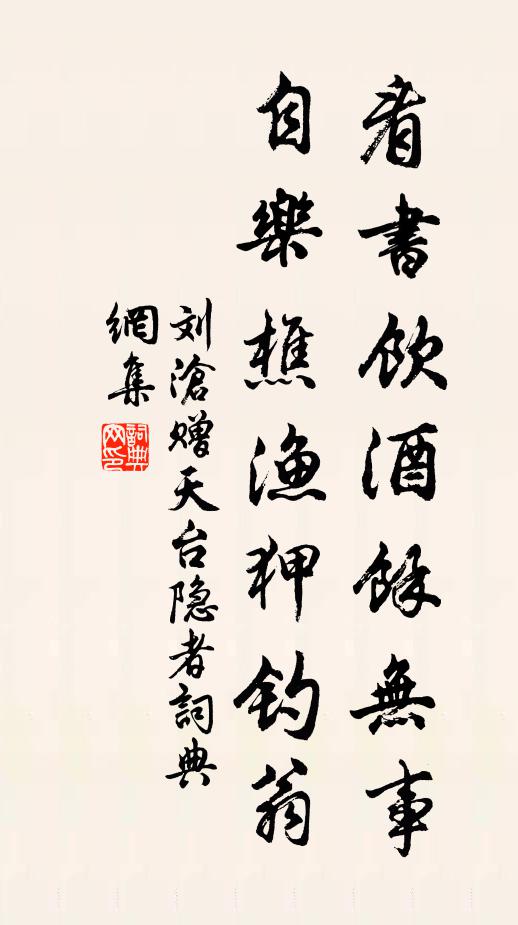 看書飲酒餘無事
自樂樵漁狎釣翁
刘滄赠天台隐者詞典
網集
詞典
网印